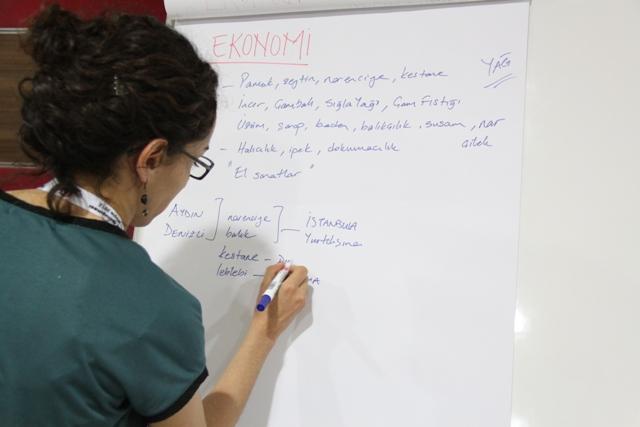 EKONOMİ
- Pamuk, zeytin, narenciye, kestane
YAĞ
İncir, Çambalı, Sığla Yağı, Çam Fıstığı
Üzüm, şarap, badem, balıkçılık, susam, nar
çilek
- Halıcılık, ipek, dokumacılık
"El sanatlar"
AYDIN
DENİZLİ
narenciye
balık
İSTANBULA
Yurtdışına
kestane -
leblebi -